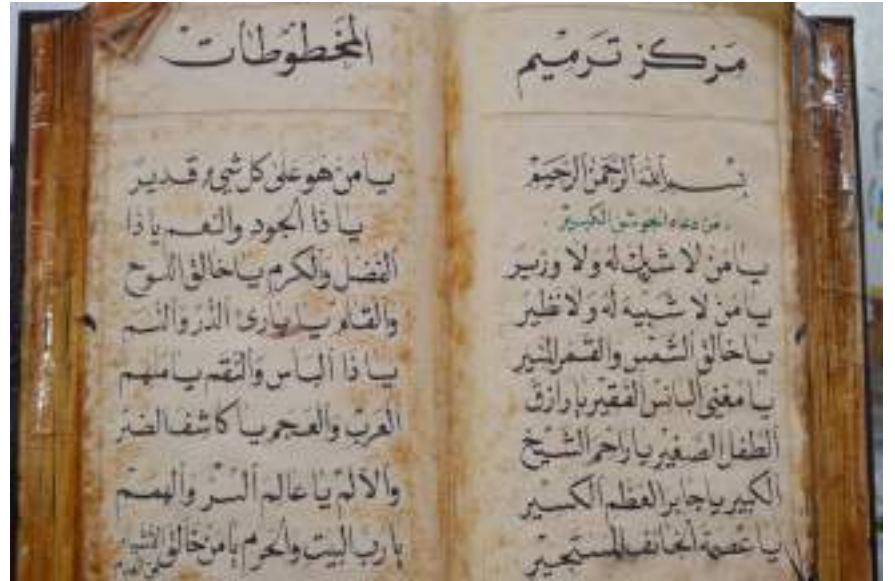 مَركز تَرميم
بِسْمِ اللهِ الرَّحْمٰنِ الرَّحيمْ
من دعاء الجوشن الكبير
يا مَن لا شريك لَهُ ولا وزير
يا مَن لا شَبيهَ لَهُ وَلا نظير
يا خالق الشَّمْس والقمر المنير
يا مغني البائس الفقير يا رازق
الطفل الصغير يا راحم الشيخ
الكبير يا جابر العظم الكسير
يا عصمة الخائف المستجير
المخطوطات
يا من هو على كل شيء قدير
يا ذا الجود والنعم يا ذا
الفضل والكرم يا خالق اللوح
والقلم يا بارئ الذر والنسم
يا ذا البأس والنقم يا ملهم
العرب والعجم يا كاشف الضر
والألم يا عالم السر والهمم
يا رب البيت والحرم يا من خالق الأشياء
من العدم